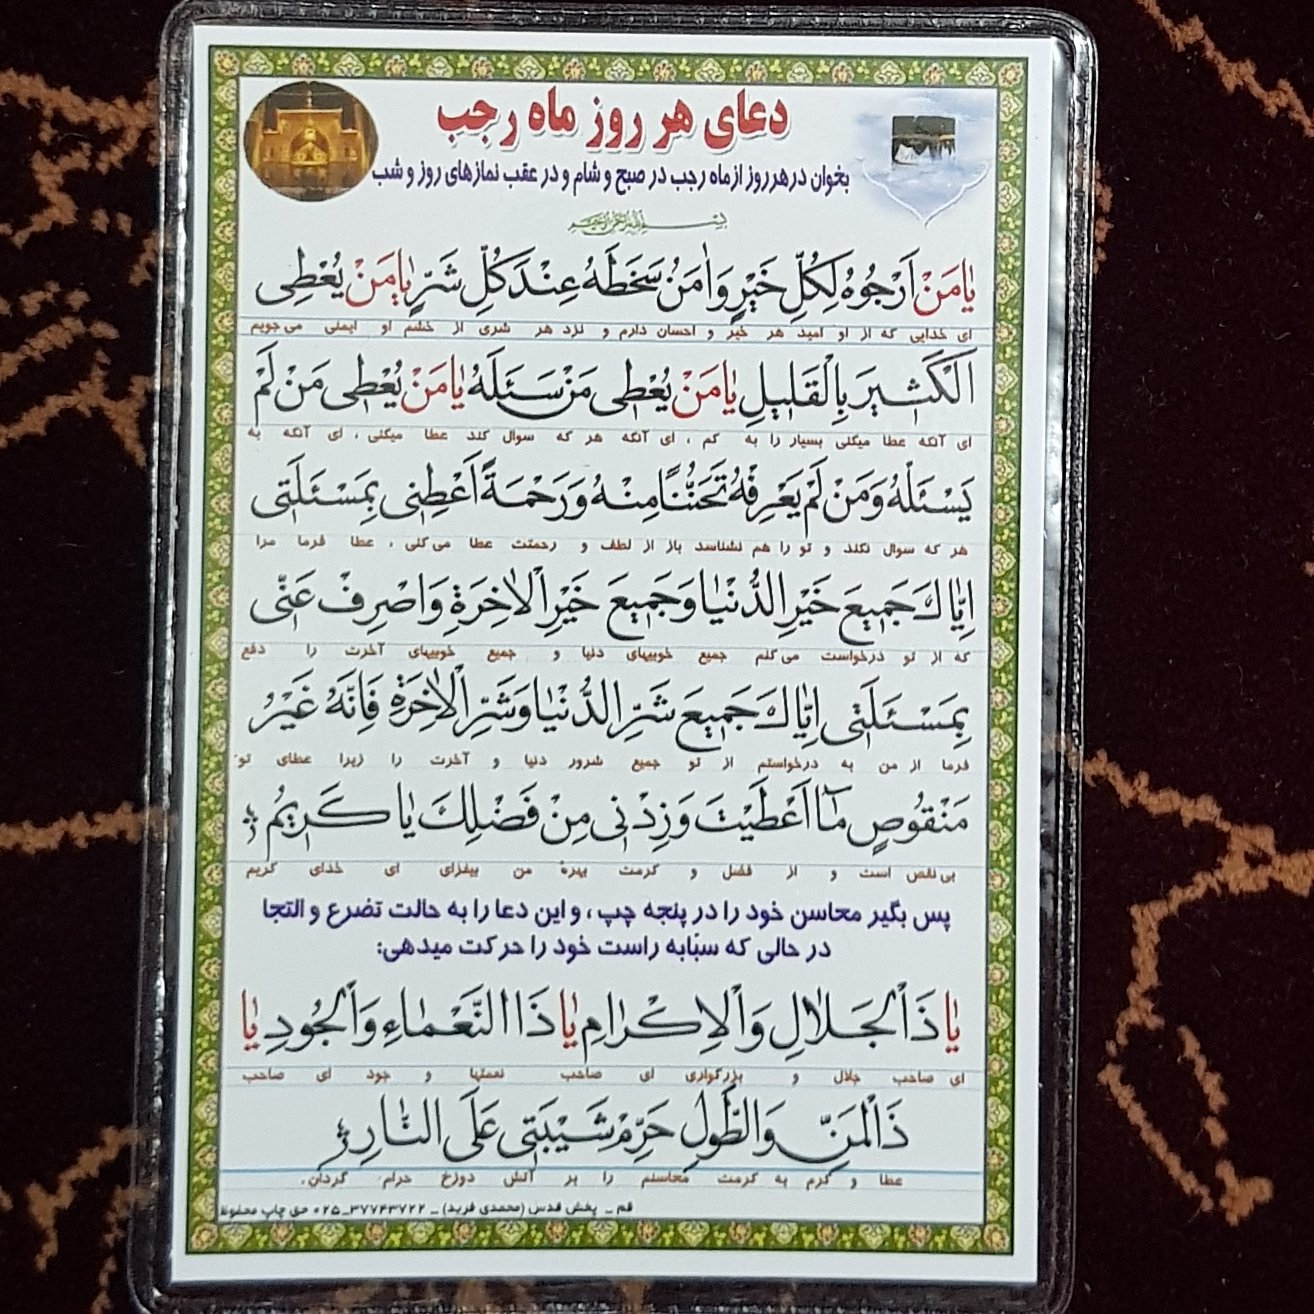 دعای هر روز ماه رجب
بخوان در هر روز از ماه رجب در صبح و شام و در عقب نمازهای روز و شب
بسم الله الرحمن الرحیم
یٰا مَنْ اَرْجُوهُ لِکُلِّ خَیْرٍ وَاٰمَنُ سَخَطَهُ عِنْدَ کُلِّ شَرٍّ یٰا مَنْ یُعْطِی
ای خدایی که از او امید هر خیر و احسان دارم و نزد هر شری از خشم او ایمنی می‌جویم
الْکَثیرَ بِالْقَلیلِ یٰا مَنْ یُعْطی مَنْ سَئَلَهُ یٰا مَنْ یُعْطی مَنْ لَمْ
ای آنکه عطا میکنی بسیار را به کم ، ای آنکه هر که سوال کند عطا میکنی ، ای آنکه به
یَسْئَلْهُ وَمَنْ لَمْ یَعْرِفْهُ تَحَنُّنًا مِنْهُ وَرَحْمَةً اَعْطِنی بِمَسْئَلَتی
هر که سوال نکند و تو را هم نشناسد باز از لطف و رحمتت عطا می‌کنی ، عطا فرما مرا
اِیّٰاکَ جَمیعَ خَیْرِ الدُّنْیٰا وَجَمیعَ خَیْرِ الْاٰخِرَةِ وَاصْرِفْ عَنّی
که از تو درخواست می‌کنم جمیع خوبیهای دنیا و جمیع خوبیهای آخرت را دفع
بِمَسْئَلَتی اِیّٰاکَ جَمیعَ شَرِّ الدُّنْیٰا وَشَرِّ الْاٰخِرَةِ فَاِنَّهُ غَیْرُ
فرما از من به درخواستم از تو جمیع شرور دنیا و آخرت را زیرا عطای تو
مَنْقُوصٍ مٰا اَعْطَیْتَ وَزِدْنی مِنْ فَضْلِکَ یٰا کَریمُ
بی‌نقص است و از فضل و کرمت بهرهٔ من بیفزای ای خدای کریم
پس بگیر محاسن خود را در پنجه چپ ، و این دعا را به حالت تضرع و التجا
در حالی که سبّابه راست خود را حرکت میدهی:
یٰا ذَالْجَلاٰلِ وَالْاِکْرٰامِ یٰا ذَا النَّعْمٰاءِ وَالْجُودِ یٰا
ای صاحب جلال و بزرگواری ای صاحب نعمتها و جود ای صاحب
ذَالْمَنِّ وَالطَّوْلِ حَرِّمْ شَیْبَتی عَلَی النّٰارِ
عطا و کرم به کرمت محاسنم را بر آتش دوزخ حرام گردان.
قم _ پخش قدس (محمدی فرید) _ ۳۷۷۴۳۷۲۲-۰۲۵ حق چاپ محفوظ